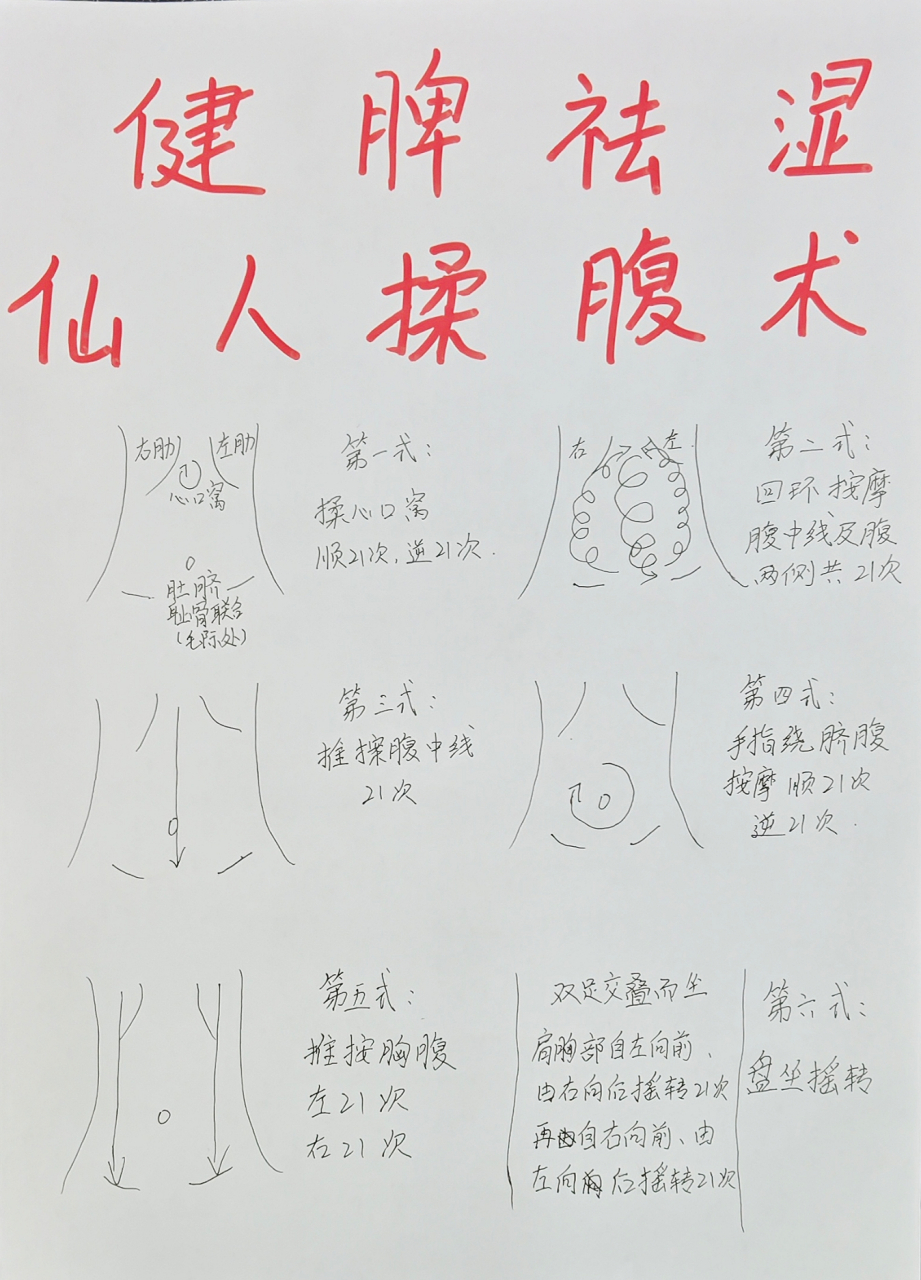 健脾祛湿
仙人揉腹术
右肋
左肋
心口窝
肚脐
耻骨联合
(毛际处)
第一式:
揉心口窝
顺21次,逆21次.
右
左
第二式:
回环按摩
腹中线及腹
两侧共21次
第三式:
推擦腹中线
21次
第四式:
手指绕脐腹
按摩顺21次
逆21次.
第五式:
推按胸腹
左21次
右21次
双足交叠而坐
肩胸部自左向前、
由右向后摇转21次
再自右向前、由
左向后摇转21次
第六式:
盘坐摇转